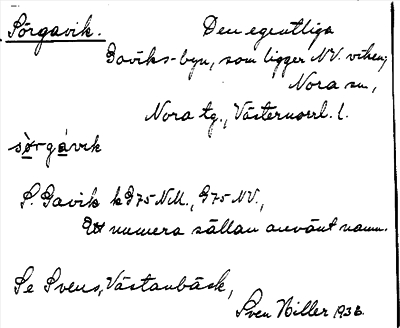 Sörgavik.
Den egentliga
Gaviks-byn, som ligger NV. viken,
Nora sn,
Nora tg., Västernorrl. l.
sö̀rgávik
S. Gavik k G75 NM., G75 NV.,
Ett numera sällan använt namn.
Se Svens, Västanbäck,
Sven Hiller 1936.